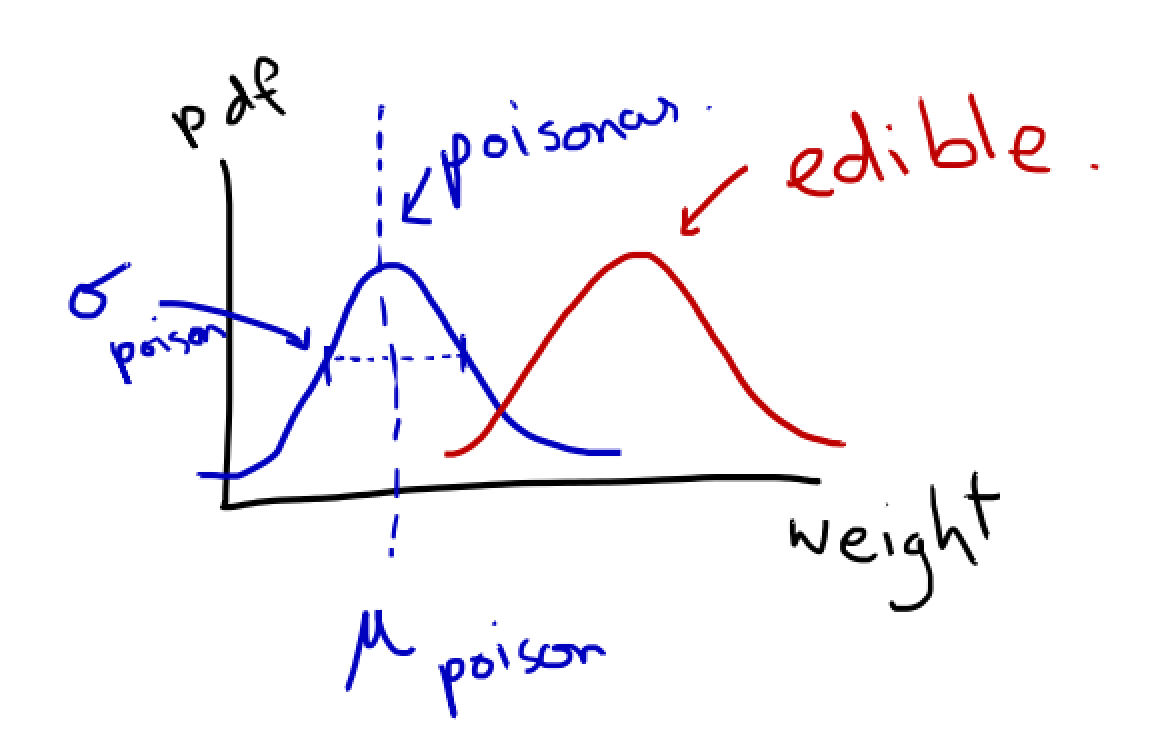 pdf
poisonous.
edible.
σ poison
weight
μ poison